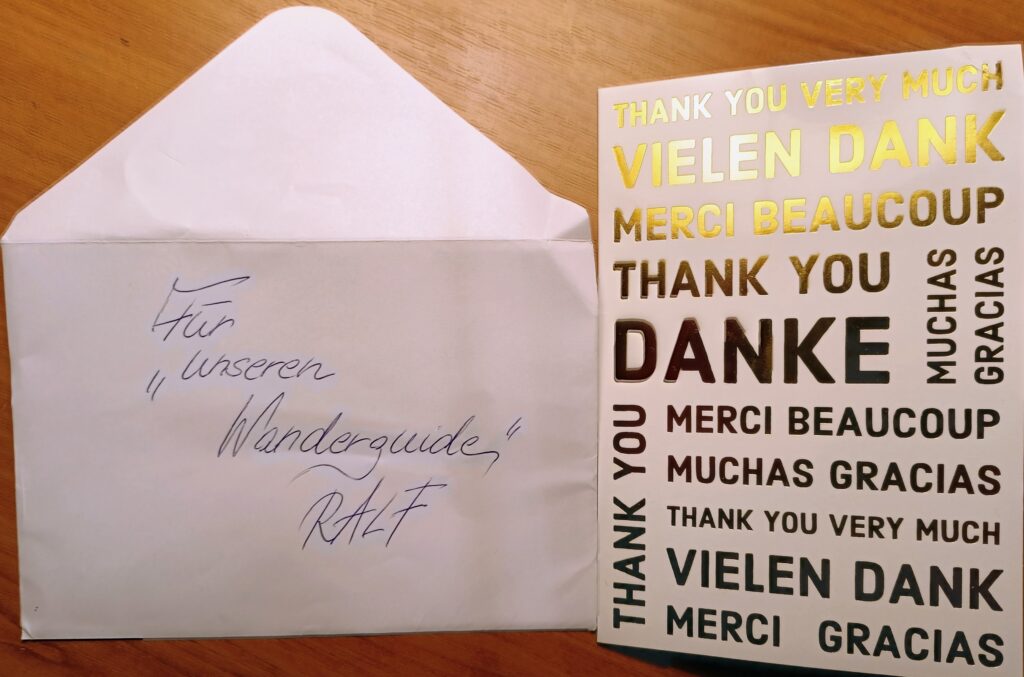 Für
„unseren
Wanderguide“
RALF
THANK YOU VERY MUCH
VIELEN DANK
MERCI BEAUCOUP
THANK YOU
DANKE
MUCHAS
GRACIAS
THANK YOU
MERCI BEAUCOUP
MUCHAS GRACIAS
THANK YOU VERY MUCH
VIELEN DANK
MERCI GRACIAS